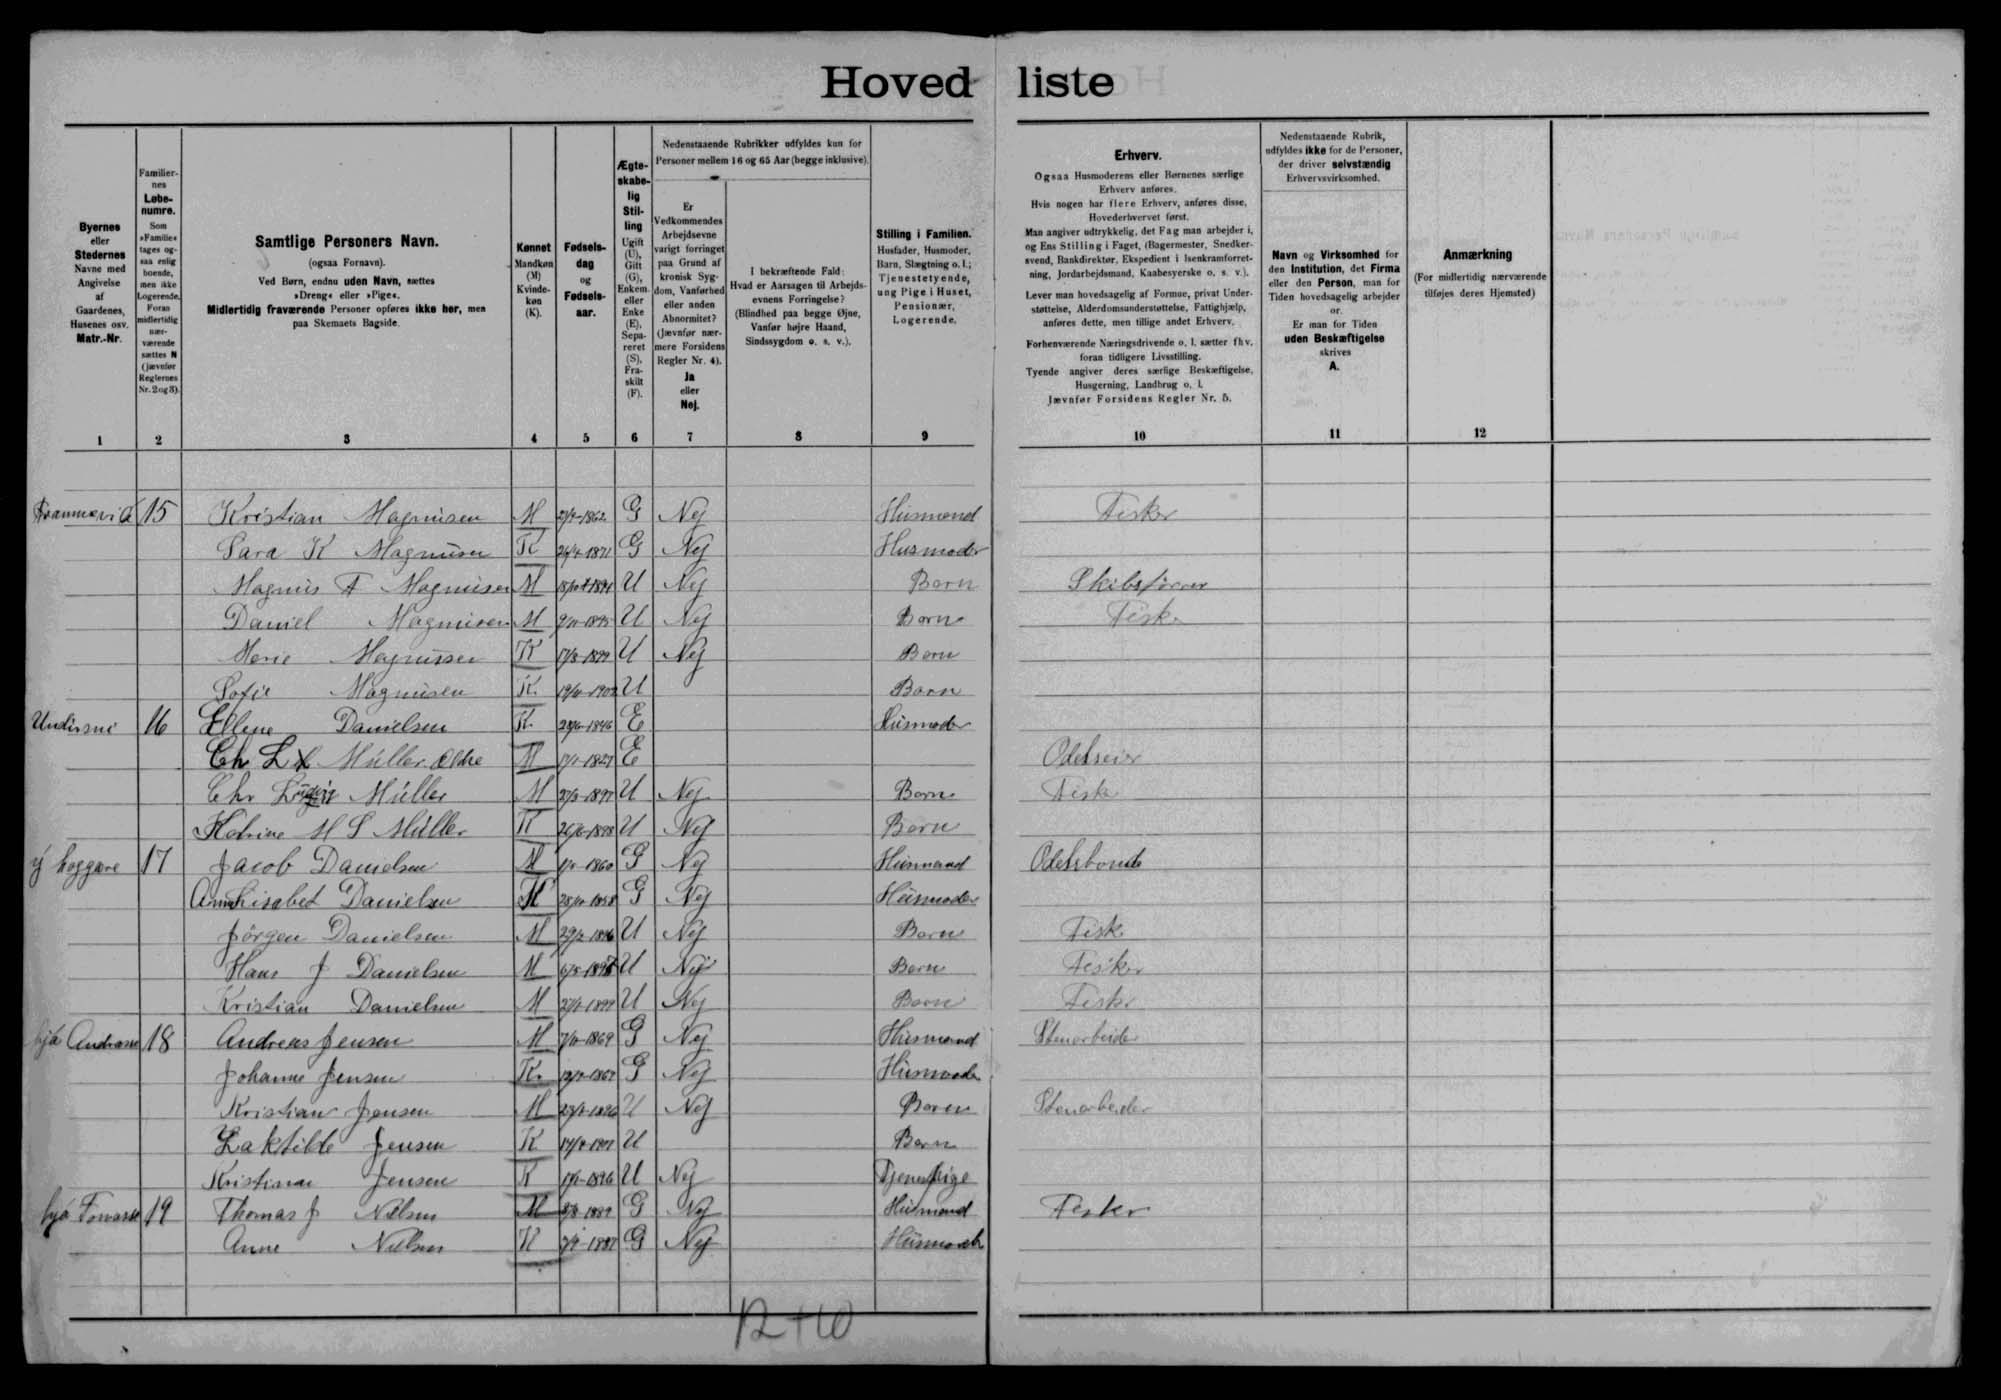 Hoved liste
Byernes
eller
Stedernes
Navne med
Angivelse
af
Gaardenes,
Husenes osv.
Matr.-Nr.
Familier-
nes
Løbe-
numre.
Som
»Familie«
tages og-
saa enlig
boende,
men ikke
Logerende.
Foran
midlertidig
nær-
værende
sættes N
(jævnfør
Reglernes
Nr. 2 og 3).
Samtlige Personers Navn.
(ogsaa Fornavn).
Ved Børn, endnu uden Navn, sættes
»Dreng« eller »Pige«.
Midlertidig fraværende Personer opføres ikke her, men
paa Skemaets Bagside.
Kønnet
Mandkøn
(M)
Kvinde-
køn
(K).
Fødsels-
dag
og
Fødsels-
aar.
Ægte-
skabe-
lig
Stil-
ling
Ugift
(U),
Gift
(G),
Enkem.
eller
Enke
(E),
Sepa-
reret
(S),
Fra-
skilt
(F).
Nedenstaaende Rubrikker udfyldes kun for
Personer mellem 16 og 65 Aar (begge inklusive).
Er
Vedkommendes
Arbejdsevne
varigt forringet
paa Grund af
kronisk Syg-
dom, Vanførhed
eller anden
Abnormitet?
(Jævnfør nær-
mere Forsidens
Regler Nr. 4).
Ja
eller
Nej.
I bekræftende Fald:
Hvad er Aarsagen til Arbejds-
evnens Forringelse?
(Blindhed paa begge Øjne,
Vanfør højre Haand,
Sindssygdom o. s. v.).
Stilling i Familien.
Husfader, Husmoder,
Barn, Slægtning o. l.;
Tjenestetyende,
ung Pige i Huset,
Pensionær,
Logerende.
Erhverv.
Ogsaa Husmoderens eller Børnenes særlige
Erhverv anføres.
Hvis nogen har flere Erhverv, anføres disse,
Hovederhvervet først.
Man angiver udtrykkelig, det Fag man arbejder i,
og Ens Stilling i Faget, (Bagermester, Snedker-
svend, Bankdirektør, Ekspedient i Isenkramforret-
ning, Jordarbejdsmand, Kaabesyerske o. s. v.).
Lever man hovedsagelig af Formue, privat Under-
støttelse, Alderdomsunderstøttelse, Fattighjælp,
anføres dette, men tillige andet Erhverv.
Forhenværende Næringsdrivende o. l. sætter fhv.
foran tidligere Livsstilling.
Tyende angiver deres særlige Beskæftigelse,
Husgerning, Landbrug o. l.
Jævnfør Forsidens Regler Nr. 5.
Nedenstaaende Rubrik,
udfyldes ikke for de Personer,
der driver selvstændig
Erhvervsvirksomhed.
Navn og Virksomhed for
den Institution, det Firma
eller den Person, man for
Tiden hovedsagelig arbejder
or.
Er man for Tiden
uden Beskæftigelse
skrives
A.
Anmærkning
(For midlertidig nærværende
tilføjes deres Hjemsted)
1 2 3 4 5 6 7 8 9 10 11 12
15 Kristian Magnusen M G Nej Husmand Fisker
Sara K Magnusen K G Nej Husmoder
Magnus F Magnusen M U Nej Barn Skibsfører
Daniel Magnusen M U Nej Barn Fisker
Marie Magnussen K U Nej Barn
Sofie Magnusen K. U Barn
16 Ellene Danielsen K. E Husmoder
Ch L Müller Ældre M E Odelseier
Chr Ludvig Müller M U Nej Barn Fisker
Katrine M S Müller K U Nej Barn
17 Jacob Danielsen M G Nej Husmand Odelsbonde
Danielsen K G Nej Husmoder
Jörgen Danielsen M U Nej Barn Fisk
Hans J Danielsen M U Nej Barn Fisker
Kristian Danielsen M U Nej Barn Fisker
18 Andreas Jensen M G Nej Husmand Stenarbeider
Johanne Jensen K. G Nej Husmoder
Kristian Jensen M U Nej Baren Stenarbeider
Jensen K U Barn
Jensen K U Nej Tjenestpige
19 Thomas J Nielsen M G Nej Husmand Fisker
Anne Nielsen K G Nej Husmoder
12+10